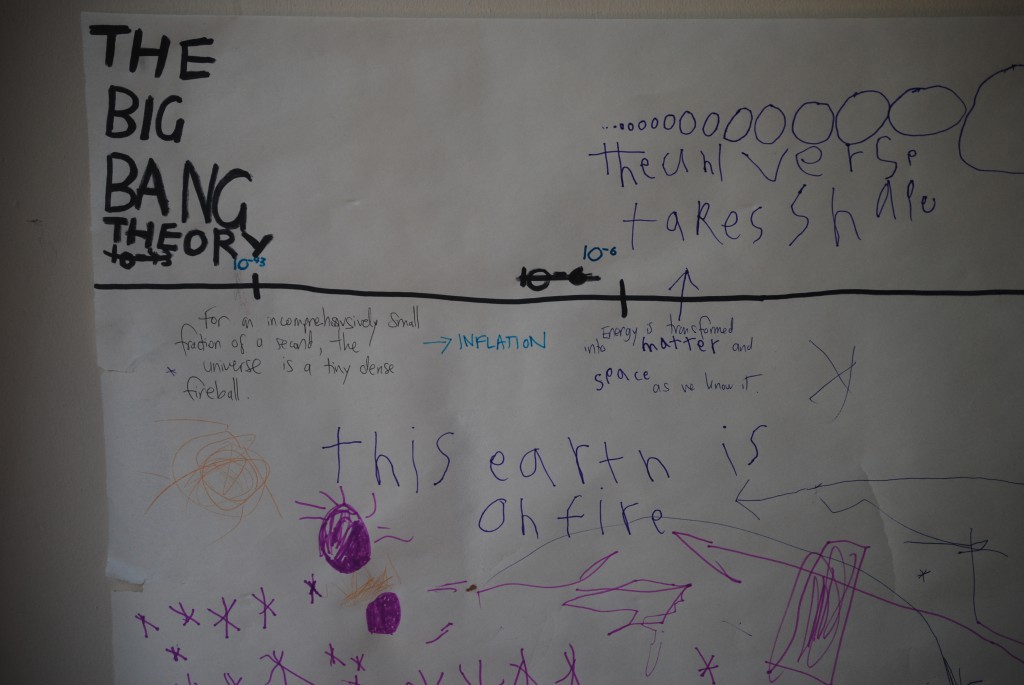 THE
BIG
BANG
THEORY
10-43
10-43
10-6
10-6
the universe
takes shape
For an incomprehensively small
fraction of a second, the
universe is a tiny dense
fireball.
→ INFLATION
Energy is transformed
into matter and
space as we know it.
this earth is
on fire